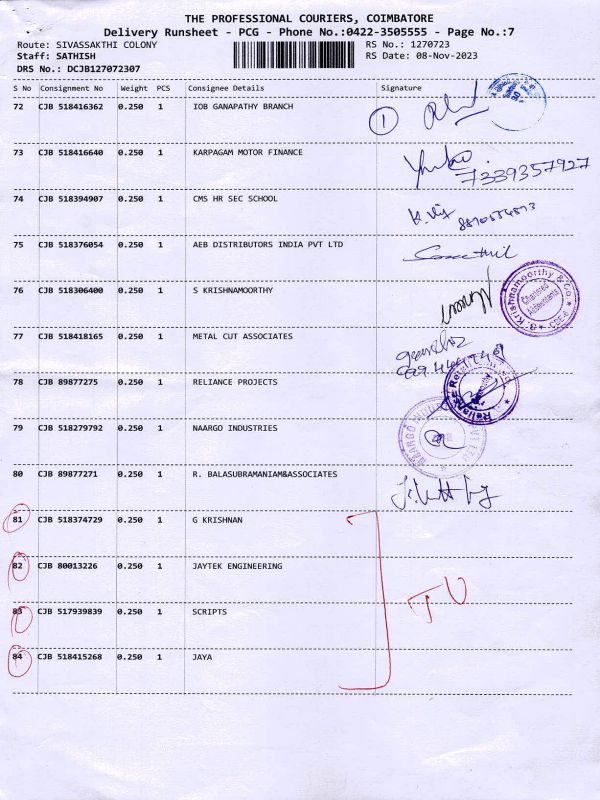 THE PROFESSIONAL COURIERS, COIMBATORE
Delivery Runsheet - PCG - Phone No.:0422-3505555 - Page No.:7
Route: SIVASSAKTHI COLONY RS No.: 1270723
Staff: SATHISH RS Date: 08-Nov-2023
DRS No.: DCJB127072307
S No Consignment No Weight PCS Consignee Details Signature
72 CJB 518416362 0.250 1 IOB GANAPATHY BRANCH 1
73 CJB 518416640 0.250 1 KARPAGAM MOTOR FINANCE 7339357927
74 CJB 518394907 0.250 1 CMS HR SEC SCHOOL
75 CJB 518376054 0.250 1 AEB DISTRIBUTORS INDIA PVT LTD
76 CJB 518306400 0.250 1 S KRISHNAMOORTHY
S. Krishnamoorthy & Co. Chartered Accountants CBE-6
77 CJB 518418165 0.250 1 METAL CUT ASSOCIATES
78 CJB 89877275 0.250 1 RELIANCE PROJECTS
79 CJB 518279792 0.250 1 NAARGO INDUSTRIES
80 CJB 89877271 0.250 1 R. BALASUBRAMANIAM&ASSOCIATES
81 CJB 518374729 0.250 1 G KRISHNAN
82 CJB 80013226 0.250 1 JAYTEK ENGINEERING
83 CJB 517939839 0.250 1 SCRIPTS
84 CJB 518415268 0.250 1 JAYA